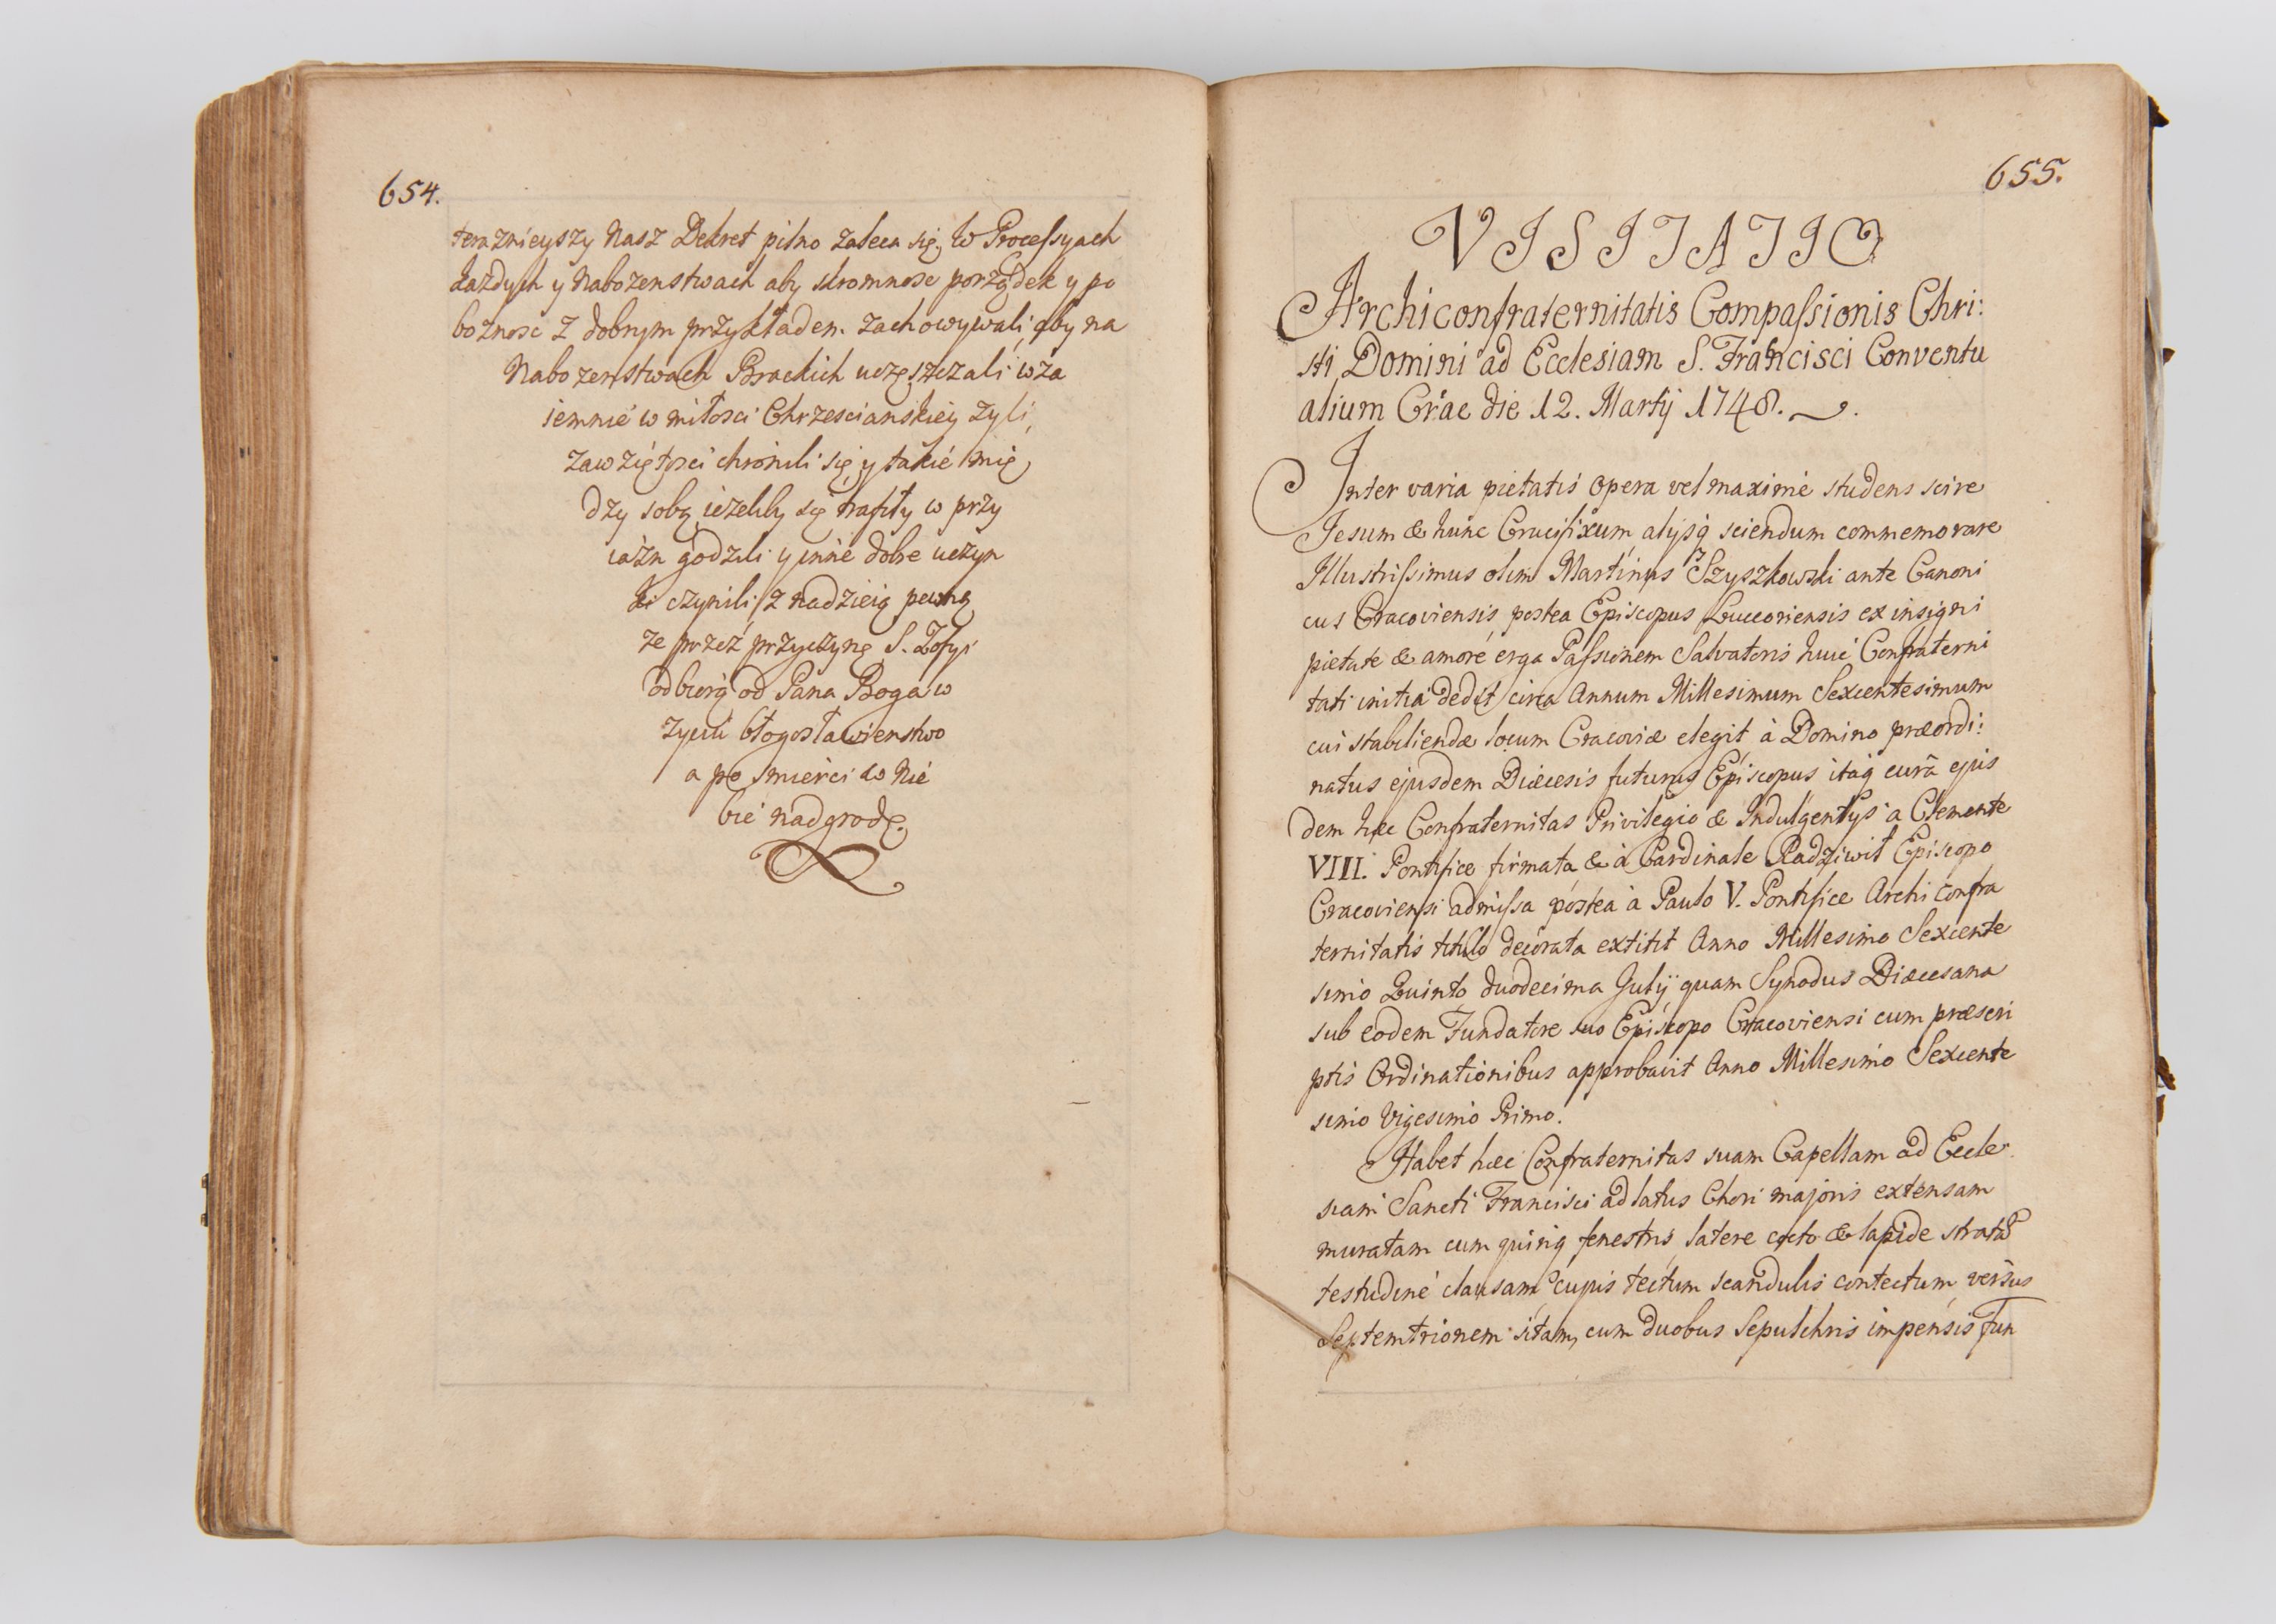 654.
teraznieyszy Nasz Dekret pilno zaleca się, W Processyach
każdych y Nabozenstwach aby skromnosc porządek y po
boznosc z dobrym przykładem zachowywali, aby na
Nabozenstwach Brackich uczęszczali wza
iemnie w miłosci Chrzescianskiey zyli,
zawziętosci chronili się y takie mię
dzy sobą iezeliby się trafiły w przy
iazn godzili y inne dobre uczyn
ki czynili, z nadzieią pewną
ze przez przyczynę S. Zofyi
odbiorą od Pana Boga w
zyciu błogosławienstwo
a po smierci w Nie
bie nadgrodę.
655.
VISITATIO
Archiconfraternitatis Compassionis Chri:
sti Domini ad Ecclesiam S. Francisci Conventu
alium Crac die 12. Martij 1748.
Inter varia pietatis opera vel maximé studens scire
Jesum & hunc Crucifixum, alijsq sciendum commemorare
Illustrissimus olim Martinus Szyszkowski ante Canoni
cus Cracoviensis, postea Episcopus Luceoriensis ex insigni
pietate & amore erga Passionem Salvatoris huic Confraterni
tati initia dedit circa Annum Millesimum Sexcentesimum
cui stabiliendæ locum Cracoviæ elegit à Domino præordi:
natus ejusdem Diæcesis futurus Episcopus itaq curâ ejus
dem hæc Confraternitas Privilegio & Indulgentijs a Clemente
VIII. Pontifice firmata & à Cardinale Radziwił Episcopo
Cracoviensi admissa postea à Paulo V. Pontifice Archi Confra
ternitatis titulo decorata extitit Anno Millesimo Sexcente
simo Quinto duodecima Julij quam Synodus Diæcesana
sub eodem Fundatore suo Episcopo Cracoviensi cum præscri
ptis Ordinationibus approbavit Anno Millesimo Sexcente
simo Vigesimo Primo.
Habet hæc Confraternitas suam Capellam ad Eccle
siam Sancti Francisci ad latus Chori majoris extensam
muratam cum quinq fenestris latere cocto & lapide stratã
testudine clausam cujus tectum scandulis contectum, versus
Septemtrionem sitam, cum duobus Sepulchris impensis Fun